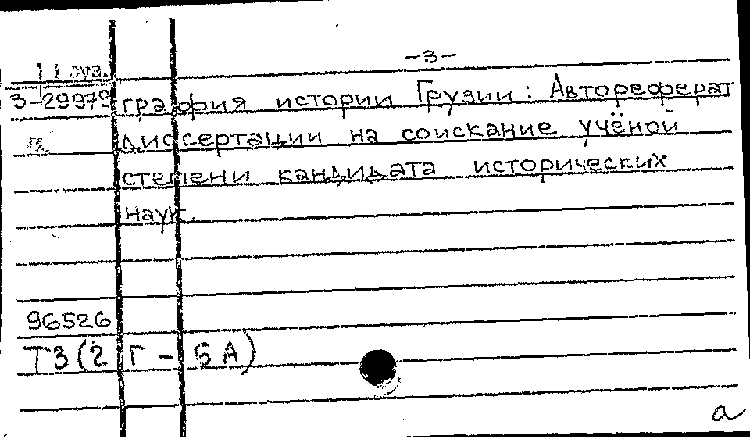 -3-
3-29979 графия истории Грузии: Автореферат
диссертации на соискание учёной
степени кандидата исторических
наук.
96526
Т3(2Г-5А)
а